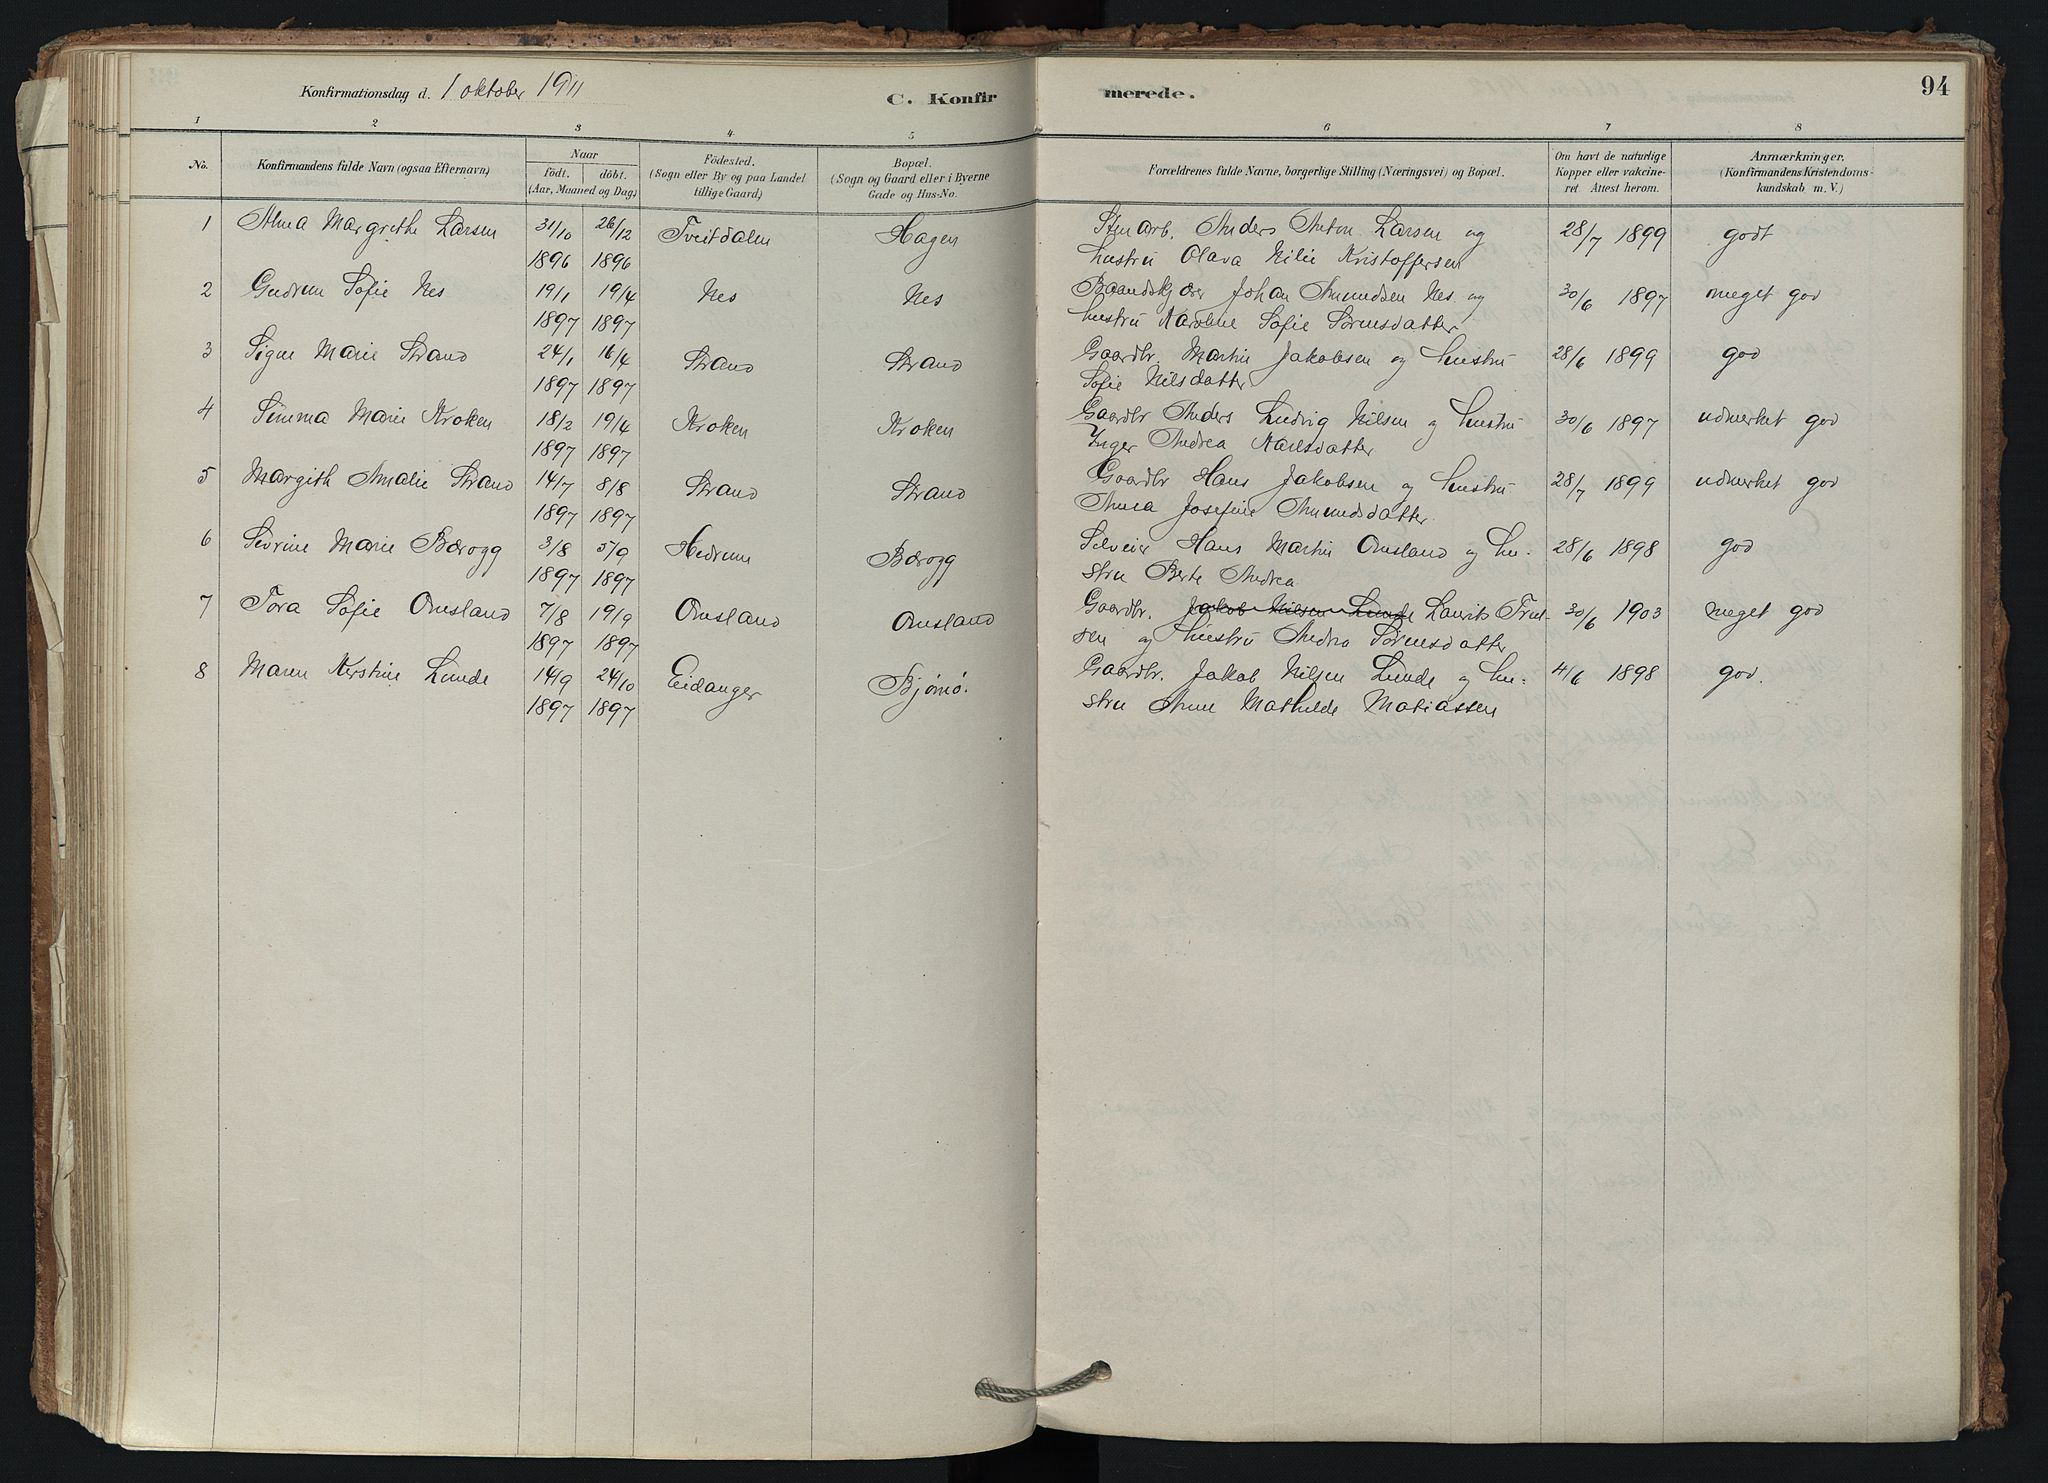 Konfirmationsdag d. 1 oktober 1911
C. Konfirmerede.
94
1 2 3 4 5 6 7 8
No.
Konfirmandens fulde Navn (ogsaa Efternavn)
Naar
født. døbt.
(Aar, Maaned og Dag)
Födested.
(Sogn eller By og paa Landet
tillige Gaard)
Bopæl.
(Sogn og Gaard eller i Byerne
Gade og Hus-No.
Forældrenes fulde Navne, borgerlige Stilling (Næringsvei) og Bopæl.
Om havt de naturlige
Kopper eller vakcine-
ret. Attest herom.
Anmærkninger.
(Konfirmandens Kristendoms-
kundskab m. V.)
1 Alma Margrethe Larsen 31/10 26/12 Tveitdalen Hagen Stenarb. Anders Anton Larsen og 28/7 1899 godt
1896 1896 hustru Olava Nilie Kristoffersen
2 Gudrun Sofie Nes 19/1 19/4 Nes Nes Baandskjærer Johan Amundsen Nes og 30/6 1897 meget god
1897 1897 hustru Karoline Sofie Sørensdatter
3 Signe Marie Strand 24/1 16/4 Strand Strand Gaardbr. Martin Jakobsen og hustru 28/6 1899 god
1897 1897 Sofie Nilsdatter
4 Simma Marie Kroken 18/2 19/4 Kroken Kroken Gaardbr Anders Ludvig Nilsen og hustru 30/6 1897 udmerket god
1897 1897 Inger Andrea Karlsdatter
5 Margith Amalie Strand 14/7 8/8 Strand Strand Gaardbr Hans Jakobsen og hustru 28/7 1899 udmerket god
1897 1897 Anna Josefine Amundsdatter.
6 Sevrine Marie Bærogg 3/8 5/9 Hedrum Bærogg Selveier Hans Martin Omsland og hu- 28/6 1898 god
1897 1897 stru Berte Andrea
7 Tora Sofie Omsland 7/8 19/9 Omsland Omsland Gaardbr. Jakob Nilsen Lunde Laurits Frit- 30/6 1903 meget god
1897 1897 sen og hustru Andrea Sørensdatter
8 Maren Kerstine Lunde 14/9 24/10 Eidanger Bjørnø. Gaardbr. Jakob Nilsen Lunde og hu- 4/6 1898 god.
1897 1897 stru Anne Mathilde Matiassen